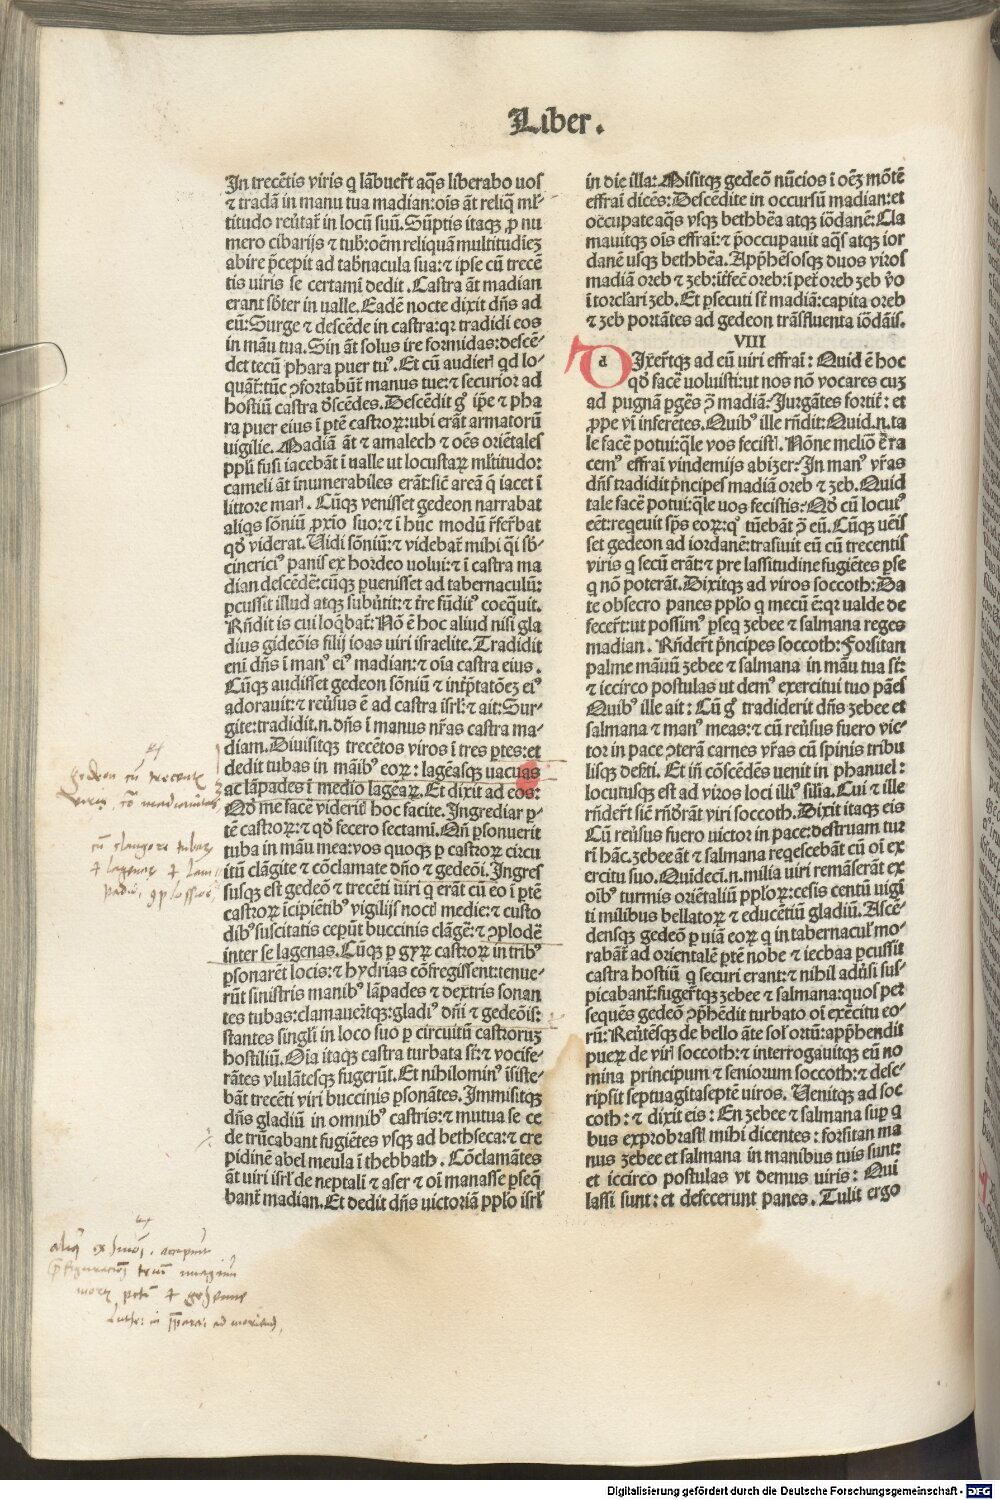 Liber.
In trecētis viris q lābuer̄t aq̄s liberabo uos
⁊ tradā in manu tua madian:oīs āt reliq̄ ml-
titudo reūtat̄ in locū suū.Sūptis itaqꝫ ꝓ nu
mero cibarijs ⁊ tub̄:oēm reliquā multitudieꝫ
abire p̄cepit ad tab̄nacula sua:⁊ ipse cū trecē
tis uiris se certamī dedit.Castra āt madian
erant sb̄ter in ualle.Eadē nocte dixit dn̄s ad
eū:Surge ⁊ descēde in castra:qꝛ tradidi eos
in māu tua.Sin āt solus ire formidas:descē-
det tecū phara puer tuꝰ.Et cū audieri qd lo-
quāt̄:tūc ꝯfortabūt̄ manus tue:⁊ securior ad
hostiū castra d̄scēdes.Descēdit gͦ ip̄e ⁊ pha
ra puer eius ī ꝑtē castroꝝ:ubi erāt armatorū
uigilie.Madiā āt ⁊ amalech ⁊ oēs oriētales
ppl̄i fusi iacebāt ī ualle ut locustaꝝ ml̄titudo:
cameli āt īnumerabiles erāt:sic̄ areā q̄ iacet ī
littore mari.Cūqꝫ venisset gedeon narrabat
aliqs sōniū ꝓxio suo:⁊ ī hūc modū r̄fer̄bat
qd̄ viderat.Uidi sōniū:⁊ videbat̄ mihi q̄i sb̄-
cinericiꝰ panis ex hordeo uolui:⁊ ī castra ma
dian descēdē:cūqꝫ ꝑuenisset ad tabernaculū:
ꝑcussit illud atqꝫ subūtit:⁊ tr̄e fūditꝰ coeq̄uit.
Rn̄dit is cui loq̄bat̄:Nō ē hoc aliud nisi gla
dius gideōis filij ioas uiri israelite.Tradidit
enī dn̄s ī manꝰ eiꝰ madian:⁊ oīa castra eius.
Cūqꝫ audisset gedeon sōniū ⁊ int̄p̄tatōeꝫ eiꝰ
adorauit:⁊ reūsus ē ad castra isrl̄:⁊ ait:Sur-
gite:tradidit.n.dn̄s ī manus nr̄as castra ma-
diam.Diuisitqꝫ trecētos viros ī tres ꝑtes:et
dedit tubas in māibꝰ eoꝝ:lagēasqꝫ uacuas
ac lāpades ī medio lageaꝝ.Et dixit ad eos:
Qd̄ me facē̄ videritꝭ hoc facite.Ingrediar ꝑ-
tē castroꝝ:⁊ qd̄ fecero sectamī.Qn̄ ꝑsonuerit
tuba in māu mea:vos quoqꝫ ꝑ castroꝝ circu
itū clāgite ⁊ cōclamate dn̄o ⁊ gedeōi.Ingres
susqꝫ est gedeō ⁊ trecēti uiri q̄ erāt cū eo ī ꝑtē
castroꝝ īcipiētibꝰ vigilijs nocti medie:⁊ custo
dibꝰ suscitatis cepūt buccinis clāgē̄:⁊ ꝯplodē̄
inter se lagenas.Cūqꝫ ꝑ gyꝝ castroꝝ in tribꝰ
ꝑsonarēt locis:⁊ hydrias cōfregissent:tenue-
rūt sinistris manibꝰ lāpades ⁊ dextris sonan
tes tubas:clamauer̄tqꝫ:gladiꝰ dn̄i ⁊ gedeōis:
stantes singli in loco suo ꝑ circuitū castroruꝫ
hostiliū.Oīa itaqꝫ castra turbata st̄:⁊ vocife-
rātes ylulātesqꝫ fugerūt.Et nihilominꝰ īsiste-
bāt trecēti viri buccinis ꝑsonātes.Immisitqꝫ
dn̄s gladiū in omnibꝰ castris:⁊ mutua se ce
de trūcabant fugiētes vsqꝫ ad bethseca:⁊ cre
pidinē abel meula ī thebbath.Cōclamātes
āt uiri isrl̄ de neptali ⁊ aser ⁊ oī manasse ꝑseq̄
bant̄ madian.Et dedit dn̄s uictoriā pplo isrl̄
in die illa:Misitqꝫ gedeō nūcios ī oēꝫ mōtē
effrai dicēs:Descēdite in occursū madian:et
occupate aq̄s vsqꝫ bethbēa atqꝫ iōdanē:Cla
mauitqꝫ oīs effrai:⁊ p̄occupauit aq̄s atqꝫ ior
danē usqꝫ bethbēa.App̄hēsosqꝫ duos viros
madiā oreb ⁊ zeb:īt̄fec̄ oreb:ī petͣ oreb zeb ṽo
ī torclari zeb.Et ꝑsecuti st̄ madiā:capita oreb
⁊ zeb portātes ad gedeon trāsfluenta iōdāis.
VIII
dIxer̄tqꝫ ad eū uiri effrai:Quid ē hoc
qd̄ facē̄ voluisti:ut nos nō vocares cuꝫ
ad pugnā ꝑgēs ꝯ̄ madiā:Jurgātes fortit̄:et
ꝓpe vī inferētes.Quibꝰ ille rn̄dit:Quid.n.ta
le facē̄ potui:q̄le vos fecistꝭ.Nōne meliō ē ra
cemꝰ effrai vindemijs abizer:In manꝰ vr̄as
dn̄s tradidit p̄ncipes madiā oreb ⁊ zeb.Quid
tale facē̄ potui:q̄le vos fecistis.Qd̄ cū locutꝰ
eēt:reqeuit sp̄s eoꝝ:qͦ tūebāt ꝯ̄ eū.Cūqꝫ uēis
set gedeon ad iordanē:trāsiuit eū cū trecentis
viris q̄ secū erāt:⁊ pre lassitudine fugiētes ꝑse
q̄ nō poterāt.Dixitqꝫ ad viros soccoth:Da
te obsecro panes pplo q̄ mecū ē:qꝛ ualde de
fecer̄t:ut possimꝰ ꝑseq̄ zebee ⁊ salmana reges
madian.Rn̄dert̄ p̄ncipes soccoth:Forsitan
palme māuū zebee ⁊ salmana in māu tua st̄:
⁊ iccirco postulas ut demꝰ exercitui tuo pāes
Quibꝰ ille ait:Cū gͦ tradiderit dn̄s zebee et
salmana ⁊ manꝰ meas:⁊ cū reūsus fuero vic-
tor in pace ꝯterā carnes vr̄as cū spinis tribu
lisqꝫ deh̄ti.Et in̄ cōscēdēs uenit in phanuel:
locutusqꝫ est ad viros loci illiꝰ silia.Cui ⁊ ille
rn̄der̄t sic̄ rn̄dr̄āt viri soccoth.Dixit itaqꝫ eis
Cū reūsus fuero uictor in pace:destruam tur
rī hāc.zebee āt ⁊ salmana reqescebāt cū oī ex
ercitu suo.Quīdecī.n.milia uiri remāserāt ex
oībꝰ turmis oriētaliū pploꝝ:cesis centū uigi
ti milibus bellatoꝝ ⁊ educētiū gladiū.Ascē-
densqꝫ gedeō ꝑ uiā eoꝝ q̄ in tabernaculꝭ mo-
rabāt̄ ad orientalē ꝑtē nobe ⁊ iecbaa ꝑcussit
castra hostiū q̄ securi erant:⁊ nihil adūsi sus-
picabant̄:fuger̄tqꝫ zebee ⁊ salmana:quos per
sequēs gedeō ꝯp̄hēdit turbato oī exēcitu eo-
rū:Reūtēsqꝫ de bello āte solꝭ ortū:app̄hendit
pueꝝ de viri soccoth:⁊ interrogauitqꝫ eū no
mina principum ⁊ seniorum soccoth:⁊ desc-
ripsit septuagītaseptē uiros.Uenitqꝫ ad soc
coth:⁊ dixit eis:En zebee ⁊ salmana suꝑ q̄
bus exprobrastꝭ mihi dicentes:forsitan ma
nus zebee et salmana in manibus tuis sunt:
et iccirco postulas vt demus viris:Qui
lassi sunt:et defecerunt panes.Tulit ergo
gedeon cū trecentis
viris, cō madianitas
cū clangore tubarum
⁊ lagenas ⁊ lam
Luthe: in ad
Digitalisierung gefördert durch die Deutsche Forschungsgemeinschaft - DFG